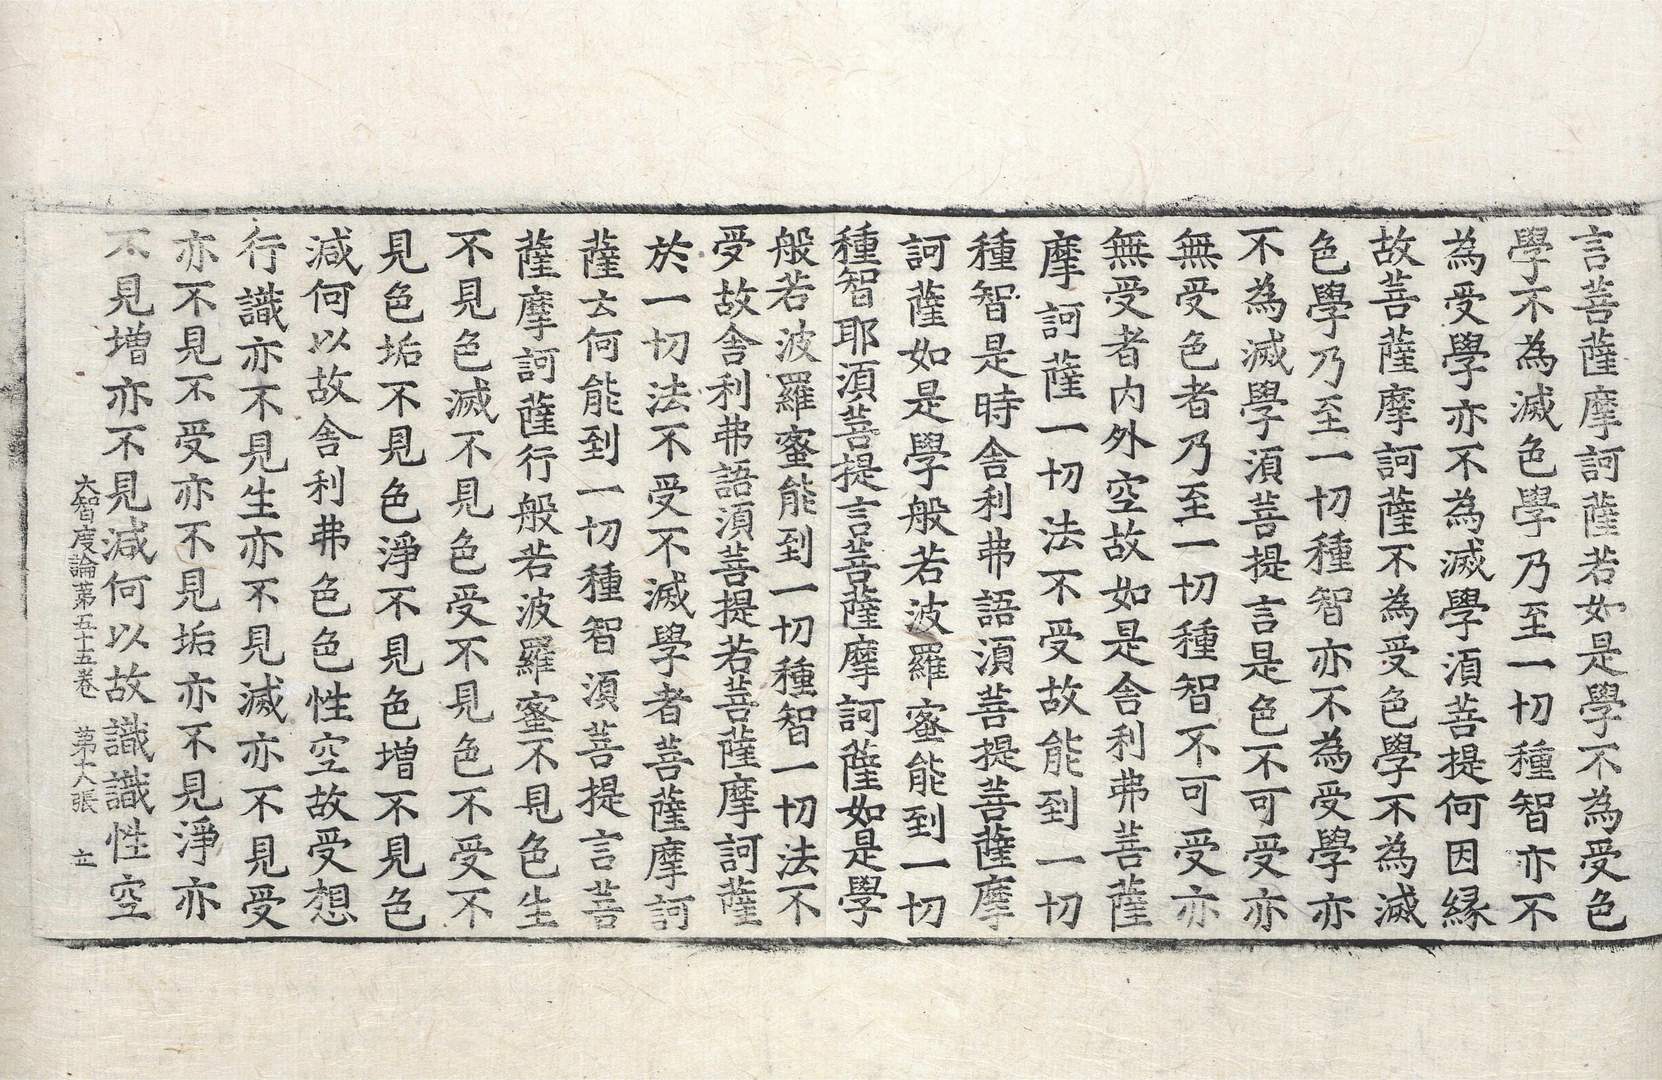 言菩薩摩訶薩若如是學不為受色
學不為滅色學乃至一切種智亦不
為受學亦不為滅學湏菩提何因縁
故菩薩摩訶薩不為受色學不為滅
色學乃至一切種智亦不為受學亦
不為滅學湏菩提言是色不可受亦
無受色者乃至一切種智不可受亦
無受者内外空故如是舍利弗菩薩
摩訶薩一切法不受故能到一切
種智是時舍利弗語湏菩提菩薩摩
訶薩如是學般若波羅蜜能到一切
種智耶湏菩提言菩薩摩訶薩如是學
般若波羅蜜能到一切種智一切法不
受故舍利弗語湏菩提若菩薩摩訶薩
於一切法不受不滅學者菩薩摩訶
薩云何能到一切種智湏菩提言菩
薩摩訶薩行般若波羅蜜不見色生
不見色滅不見色受不見色不受不
見色垢不見色淨不見色增不見色
減何以故舍利弗色色性空故受想
行識亦不見生亦不見滅亦不見受
亦不見不受亦不見垢亦不見淨亦
不見增亦不見減何以故識識性空
大智度論第五十五卷　第十八張　立